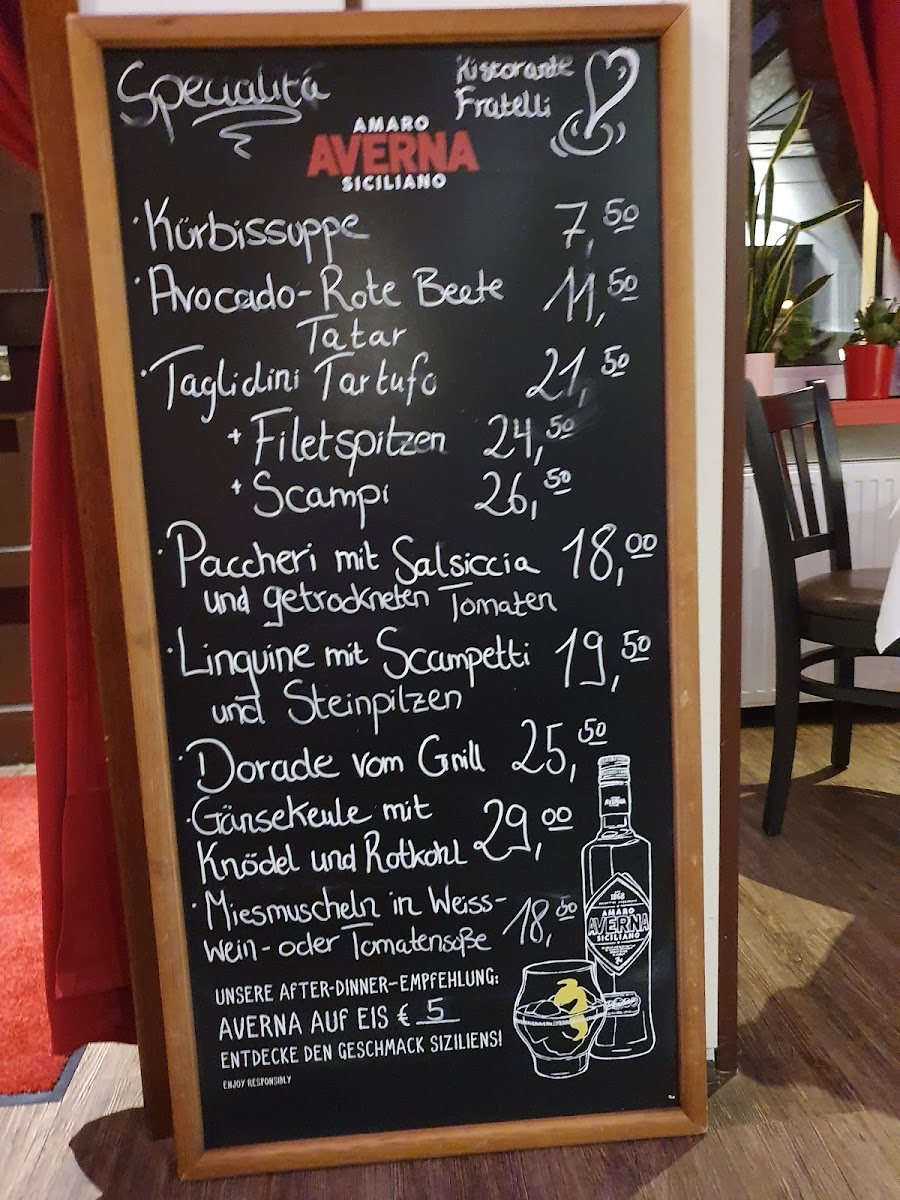 Specialitá
Ristorante
Fratelli
AMARO
AVERNA
SICILIANO
· Kürbissuppe 7,50
· Avocado-Rote Beete 11,50
Tatar
· Taglidini Tartufo 21,50
+ Filetspitzen 24,50
+ Scampi 26,50
· Paccheri mit Salsiccia 18,00
und getrockneten Tomaten
· Linguine mit Scampetti 19,50
und Steinpilzen
· Dorade vom Grill 25,50
· Gänsekeule mit 29,00
Knödel und Rotkohl
· Miesmuscheln in Weiss- 18,50
wein- oder Tomatensoße
UNSERE AFTER-DINNER-EMPFEHLUNG:
AVERNA AUF EIS € 5
ENTDECKE DEN GESCHMACK SIZILIENS!
ENJOY RESPONSIBLY
AVERNA
1868
AMARO
AVERNA
SICILIANO